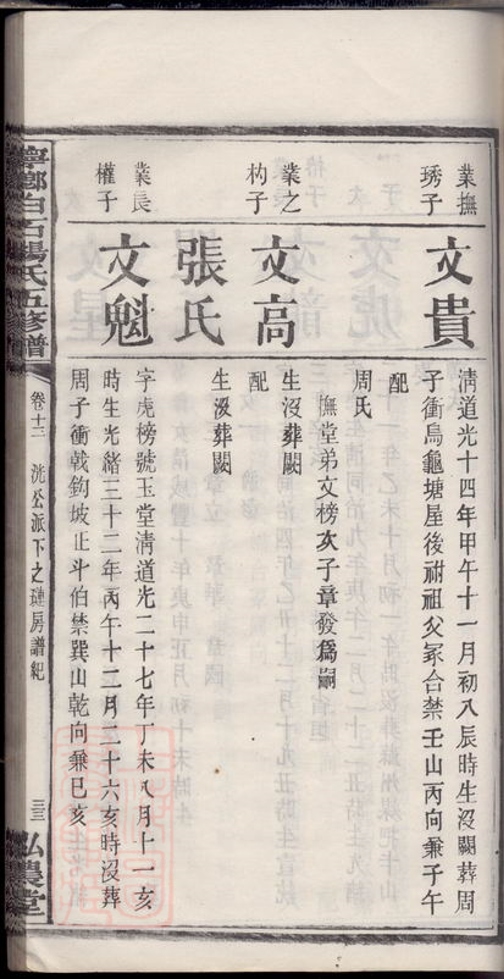 業撫
琇子
文貴
清道光十四年甲午十一月初八辰時生沒闕葬周
子衝烏龜塘屋後祔祖父冢合禁壬山丙向兼子午
配
周氏
撫堂弟文榜次子章發爲嗣
業之
杓子
文高
生沒葬闕
配
張氏
生沒葬闕
業長
權子
文魁
字虎榜號玉堂清道光二十七年丁未八月十一亥
時生光緒三十二年丙午十二月二十六亥時沒葬
周子衝戟鉤坡正斗伯禁巽山乾向兼巳亥
寧鄉白石楊氏五修譜
卷十三
洸公派下之璉房譜紀
三三
弘農堂